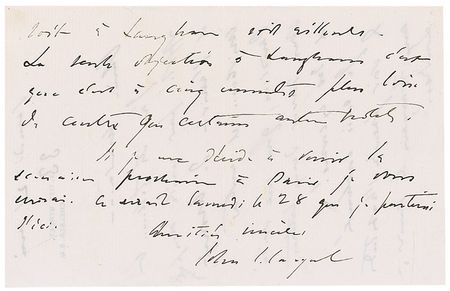 soit à Langham soit ailleurs.
La seule objection à Langham c'est
que c'est à cinq minutes plus loin
du centre que certains autres hotels.
Si je me décide à venir la
semaine prochaine à Paris je vous
verrai. Ce serait Samedi le 28 que je partirai
d'ici.
Amitiés sincères
John S. Sargent